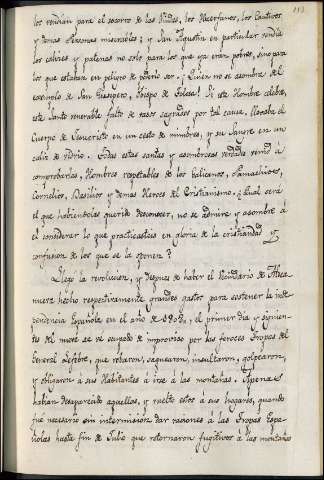 113
los rendian para el socorro de las Viudas, los Huerfanos, los Cautivos
y demas Personas miserables; y San Agustin en particular rendia
los calices y patenas no solo para los que ya eran pobres, sino para
los que estaban en peligro de poderlo ser. ¿Quien no se asombra del
exemplo de San Exuperio, Obispo de Tolosa? Si este Hombre celebre,
este Santo venerable falto de vasos sagrados por tal causa, llevaba el
Cuerpo de Jesucristo en un cesto de mimbres, y su Sangre en un
caliz de vidrio. Todas estas santas y asombrosas verdades venid à
comprobarlas, Hombres respetables de los
Cornelios, Basilios y demas Heroes del Cristianismo. ¿Cual será
el que habiendolas querido desconocer, no se admire y asombre á
el considerar lo que practicasteis en gloria de la cristiandad y
confusion de los que se la oponen?
Llegó la revolucion, y despues de haber el Vecindario de
hecho respectivamente grandes gastos para sostener la inde
pendencia Española en el año de 1808, el primer dia y siguien
tes del mismo se ve ocupado de improviso por las feroces Tropas del
General Lefebre, que robaron, saquearon, insultaron, golpearon,
y obligaron á sus Habitantes á irse á las montañas. Apenas
habian desaparecido aquellas, y vuelto estos á sus hogares, quando
fue necesario sin intermision dar raciones á las Tropas Espa
ñolas hasta fin de Julio que retornaron fugitivos á las montañas